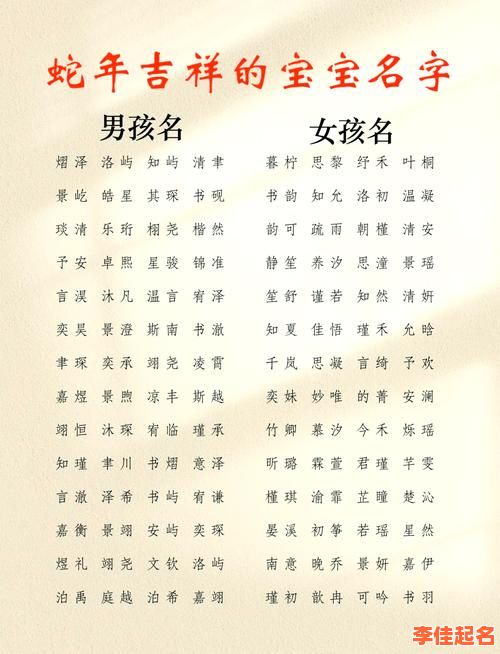 蛇年吉祥的宝宝名字
男孩名 女孩名
熠泽 洛屿 知屿 清聿 暮柠 思黎 纾禾 叶桐
景屹 皓星 其琛 书砚 书韵 知允 洛初 温凝
琰清 乐珩 栩尧 楷然 韵可 疏雨 朝槿 清安
予安 卓熙 星骏 锦准 静笙 养汐 思潼 景瑶
言淏 沐凡 温言 宥泽 笙舒 谨若 知然 清妍
奕昊 景澄 斯南 书澈 知夏 佳悟 瑾禾 允晗
聿琛 奕承 翊尧 凌霄 千岚 思凝 言绮 予欢
嘉煜 景煦 凉丰 斯越 奕姝 妙唯 的菁 安澜
翊恒 沐琛 宥临 瑾承 竹卿 慕汐 今禾 烁瑶
知瑾 聿川 书熠 意泽 昕璐 霖萱 君瑾 芊雯
言澈 泽希 书屿 宥谦 槿琪 渝霏 芷瞳 楚沁
嘉衡 景翊 安屿 奕琛 晏溪 初筝 若瑶 星然
煜礼 翊尧 文钦 洛屿 南意 晚乔 景妍 嘉伊
泊禹 庭越 泊希 嘉翊 瑾初 歆冉 可吟 书羽
李佳起名